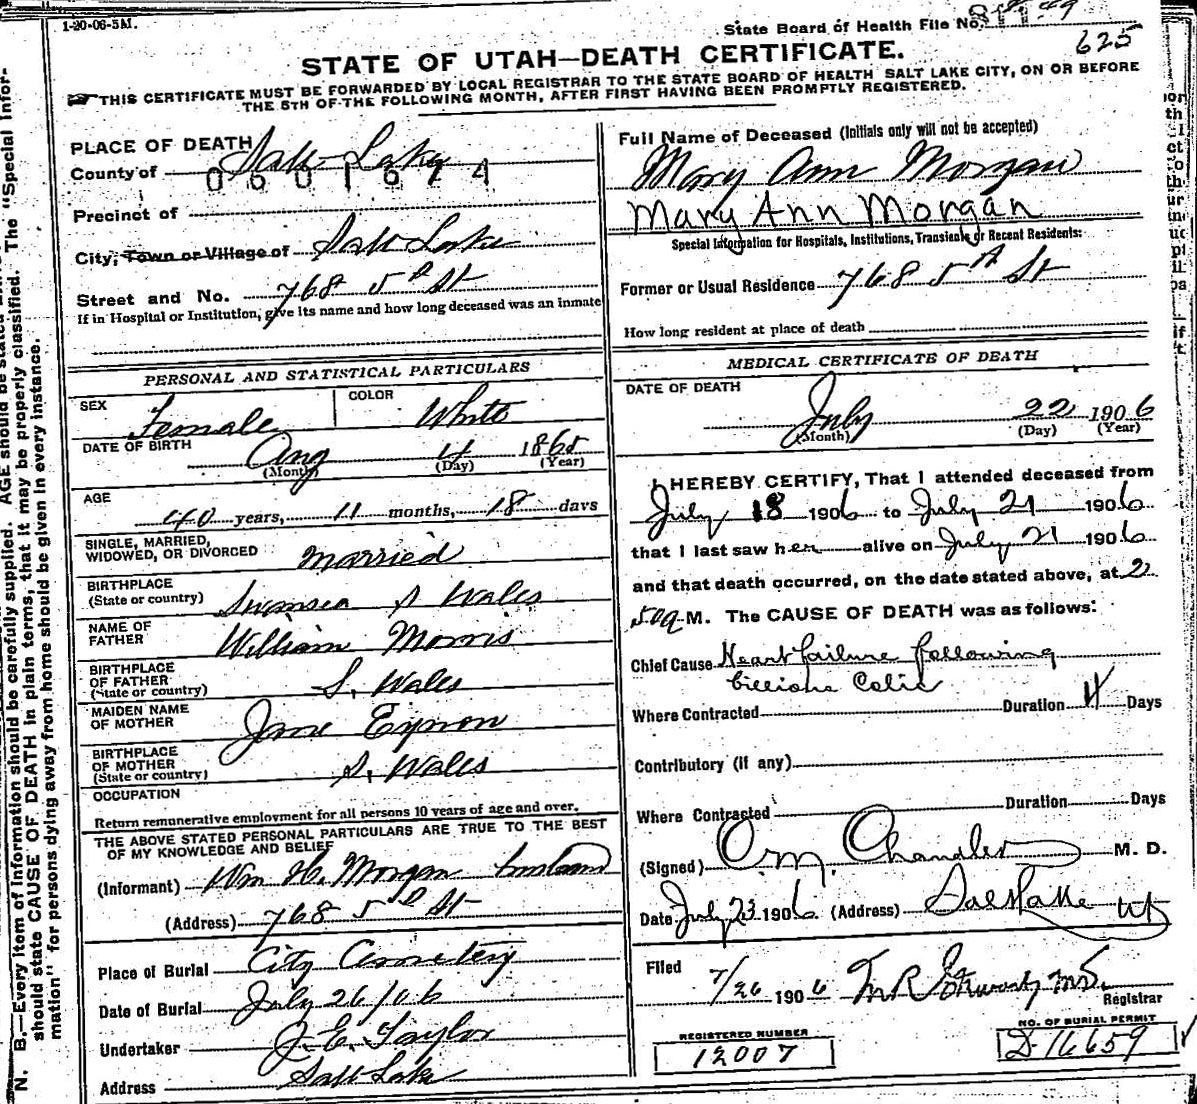 1-20-06-5M.
State Board of Health File No.
625
STATE OF UTAH—DEATH CERTIFICATE.
THIS CERTIFICATE MUST BE FORWARDED BY LOCAL REGISTRAR TO THE STATE BOARD OF HEALTH SALT LAKE CITY, ON OR BEFORE
THE 5TH OF THE FOLLOWING MONTH, AFTER FIRST HAVING BEEN PROMPTLY REGISTERED.
PLACE OF DEATH
County of Salt Lake
0601674
Precinct of
City, Town or Village of Salt Lake
Street and No. 768 5th St
If in Hospital or Institution, give its name and how long deceased was an inmate
PERSONAL AND STATISTICAL PARTICULARS
SEX Female COLOR White
DATE OF BIRTH Aug 4 1865
(Month) (Day) (Year)
AGE
40 years, 11 months, 18 days
SINGLE, MARRIED,
WIDOWED, OR DIVORCED Married
BIRTHPLACE
(State or country) Swansea S Wales
NAME OF
FATHER William Morris
BIRTHPLACE
OF FATHER
(State or country) S. Wales
MAIDEN NAME
OF MOTHER Jane Eynon
BIRTHPLACE
OF MOTHER
(State or country) S. Wales
OCCUPATION
Return remunerative employment for all persons 10 years of age and over.
THE ABOVE STATED PERSONAL PARTICULARS ARE TRUE TO THE BEST
OF MY KNOWLEDGE AND BELIEF
(Informant) Wm H. Morgan husband
(Address) 768 5th St
Place of Burial City Cemetery
Date of Burial July 26/06
Undertaker J. E. Taylor
Address Salt Lake
Full Name of Deceased (Initials only will not be accepted)
Mary Ann Morgan
Mary Ann Morgan
Special Information for Hospitals, Institutions, Transients or Recent Residents:
Former or Usual Residence 768 5th St
How long resident at place of death
MEDICAL CERTIFICATE OF DEATH
DATE OF DEATH
July 22 1906
(Month) (Day) (Year)
I HEREBY CERTIFY, That I attended deceased from
July 18 1906 to July 21 1906
that I last saw her alive on July 21 1906
and that death occurred, on the date stated above, at 2
50a M. The CAUSE OF DEATH was as follows:
Chief Cause Heart failure following
billions Colic
Where Contracted Duration 4 Days
Contributory (if any)
Where Contracted Duration Days
(Signed) O. M. Chandler M. D.
Date July 23 1906 (Address) Salt Lake Ut
Filed 7/26 1906
Registrar
REGISTERED NUMBER
12007
NO. OF BURIAL PERMIT
D-16659
N. B.—Every item of information should be carefully supplied. AGE should be stated
should state CAUSE OF DEATH in plain terms, that it may be properly classified. The "Special Infor-
mation" for persons dying away from home should be given in every instance.